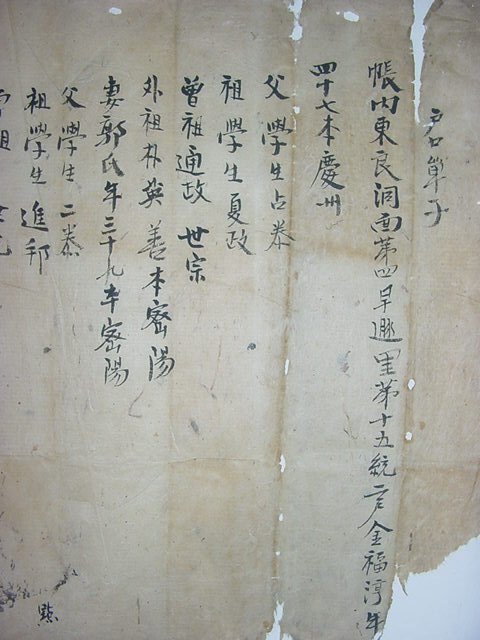 戶口單子
帳內東良洞面第四旱遯里第十五統戶金福淳年
四十七本慶州
父學生占泰
祖學生夏政
曾祖通政世宗
外祖朴英善本密陽
妻郭氏年三十九本密陽
父學生二泰
祖學生進邦
曾祖